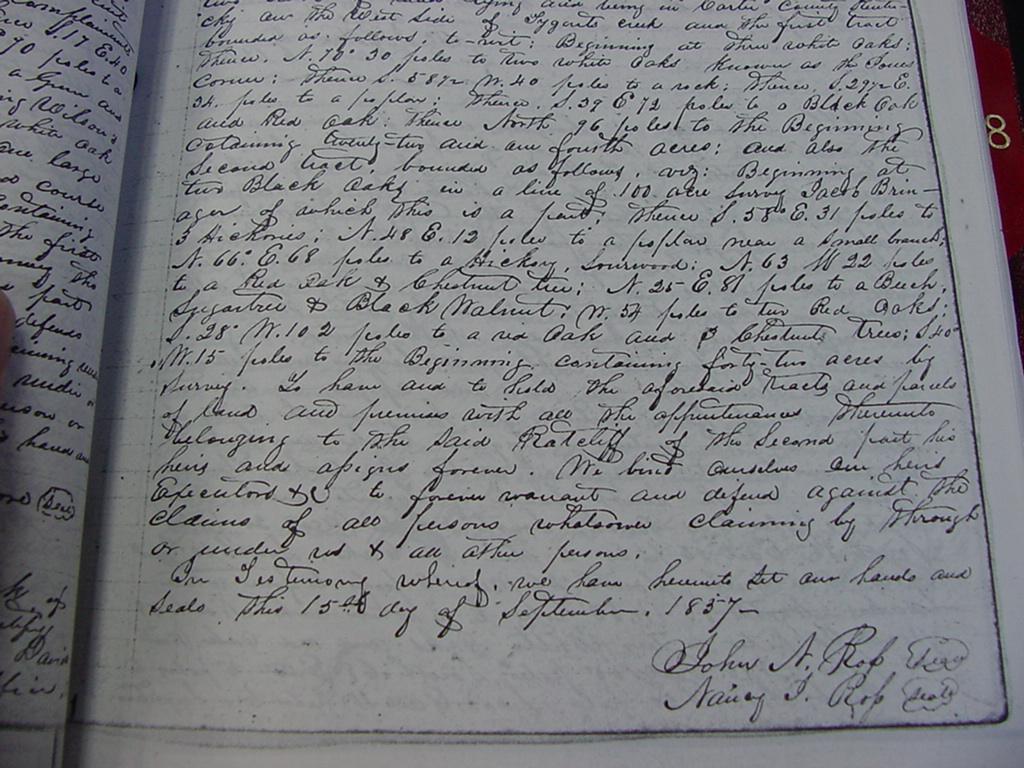 two lying and being in Carter County Kentu-
cky on the West side of Tygarts creek and the first tract
bounded as follows, to-wit: Beginning at three white oaks;
thence, N. 70° 30 poles to two white oaks known as the
corner; thence S. 58½ W. 40 poles to a rock; thence S. 29½ E.
34. poles to a poplar; thence, S. 39 E 72 poles to a Black Oak
and Red oak: thence North 96 poles to the Beginning
cotaining twenty-two and one fourth acres; and also the
second tract, bounded as follows, viz: Beginning at
two Black oaks in a line of 100 acre survey Jacob Brin-
ager of which this is a part; thence S. 58° E. 31 poles to
3 Hickories; N. 48 E. 12 poles to a poplar near a small branch;
N. 66° E. 68 poles to a Hickory, Sourwood; N. 63 W 22 poles
to a Red Oak & Chestnut tree; N. 25 E. 81 poles to a Beech,
Sugartree & Black Walnut; W. 54 poles to two Red Oaks;
S. 28° W. 102 poles to a red oak and 3 Chestnut trees; S 40°
W. 15 poles to the Beginning containing forty-two acres by
survey. To have and to hold the aforesaid tracts and parcels
of land and premises with all the appurtenances thereunto
belonging to the said Ratcliff of the second part his
heirs and assigns forever. We bind ourselves our heirs
Executors &c to forever warrant and defend against the
claims of all persons whatsoever claiming by through
or under us & all other persons.
In Testimony whereof, we have hereunto set our hands and
seals this 15th day of September, 1857
John N. Ross (Seal)
Nancy J. Ross (Seal)
8